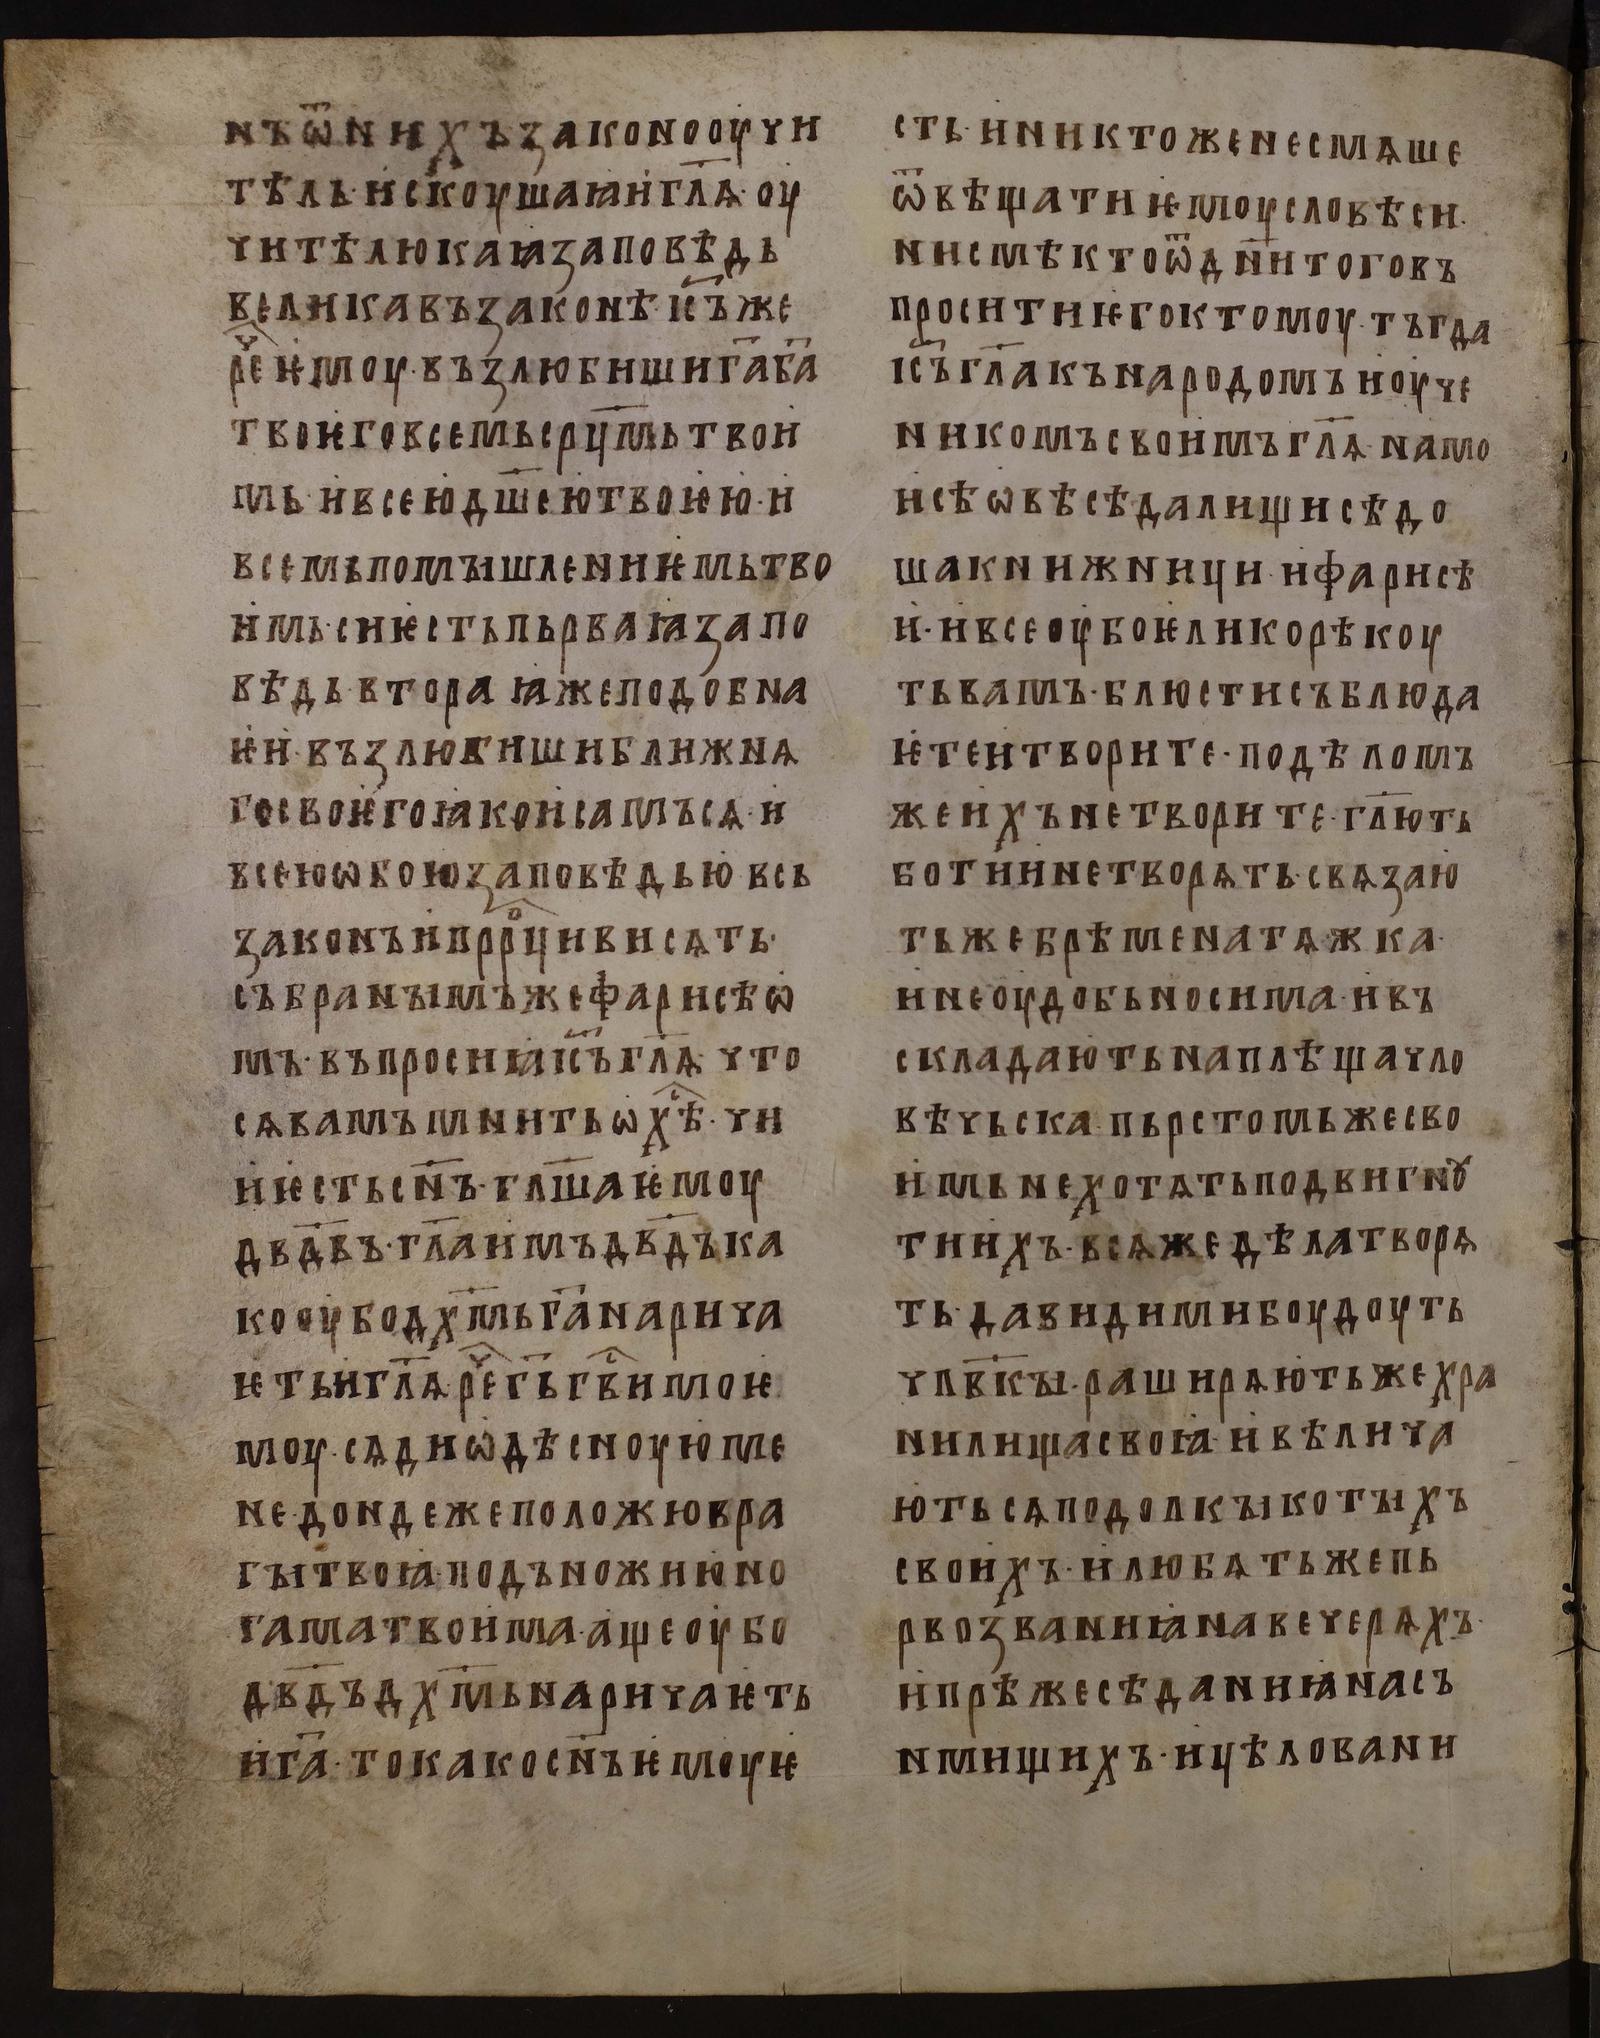 нъѿнихъзаконооучи
тѣль·искоушаꙗигл҃ѧ·оу
чителюкаꙗзаповѣдь
великавъзаконѣ·іс҃ъже
рече҇ѥмоу·възлюбишига҃ба҃
твоѥговсемьсрц҃мьтвои
мь·ивсеюдш҃еютвоѥю·и
всемьпомъішлениѥмьтво
имь·сиѥстьпьрваꙗзапо
вѣдь·втораꙗжеподобна
ѥи·възлюбишиближнѧ
госвоѥгоꙗкоисамъсѧ·и
всеюѡбоюзаповѣдьювсь
законъипрⷪ҇рцивисѧть·
събранъімъжефарисѣѡ
мъ·въпросиꙗіс҃ъгл҃ѧ·что
сѧвамъмнитьѡхⷭ҇ѣ·чи
иѥстьсн҃ъ·глш҃аѥмоу
двд҃въ·гл҃аимъдвд҃ъка
кооубодх҃мьга҃нарича
ѥтьигл҃ѧ·реⷱ҇гь҃гвⷭ҇имоѥ
моу·сѧдиѡдѣсноуюме
не·дондежеположювра
гъітвоꙗ·подъножиюно
гаматвоима·ащеоубо
двд҃ъдх҃мьнаричаѥть
ига҃·токакосн҃ъѥмоуѥ
сть·иниктоженесмѧше
ѿвѣщатиѥмоусловѣси·
нисмѣктоѿдн҃итоговъ
проситиѥгоктомоу·тъгда
іс҃ъгл҃акънародомъиоуче
никомъсвоимъгл҃ѧ·намо
исѣѡвѣсѣдалищисѣдо
шакнижници·ифарисѣ
и·ивсеоубоѥликорѣкоу
тьвамъ·блюстисъблюда
ѥтеитворите·подѣломъ
жеихънетворите·гл҃ють
ботиинетворѧть·свѧзаю
тьжебрѣменатѧжка·
инеоудобьносима·ивъ
складаютьнаплѣщачло
вѣчьска·пьрстомьжесво
имьнехотѧтьподвигнꙋ
тиихъ·всѧжедѣлатворѧ
ть·давидимибоудоуть
члв҃къі·раширѧютьжехра
нилищасвоꙗ·ивѣлича
ютьсѧподолкъікотъіхъ
своихъ·илюбѧтьжепь
рвозванниꙗнавечерѧхъ·
ипрѣжесѣданиꙗнасъ
нмищихъ·ицѣловани